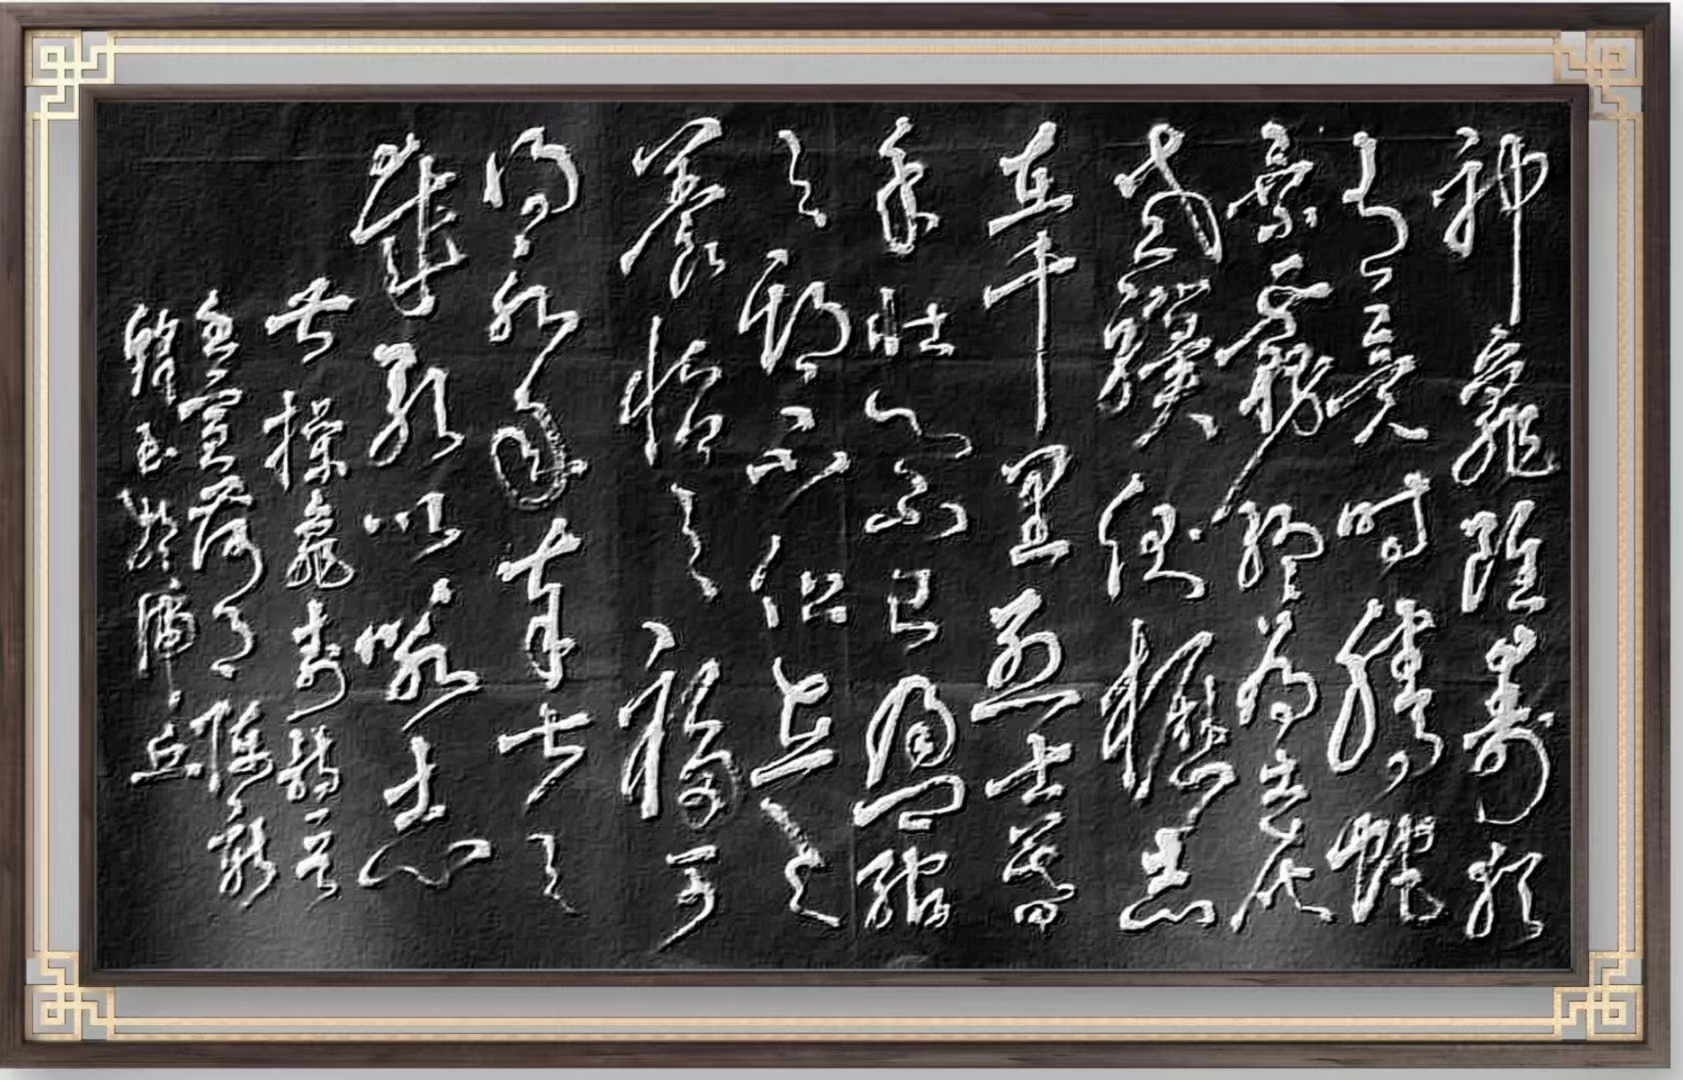 神龜雖壽猶
有竟時騰蛇
乘霧終為土灰
老驥伏櫪志
在千里烈士暮
年壯心不已盈縮
之期不但在天
養怡之福可
得永年幸甚至
哉歌以詠志
曹操龜壽詩一首